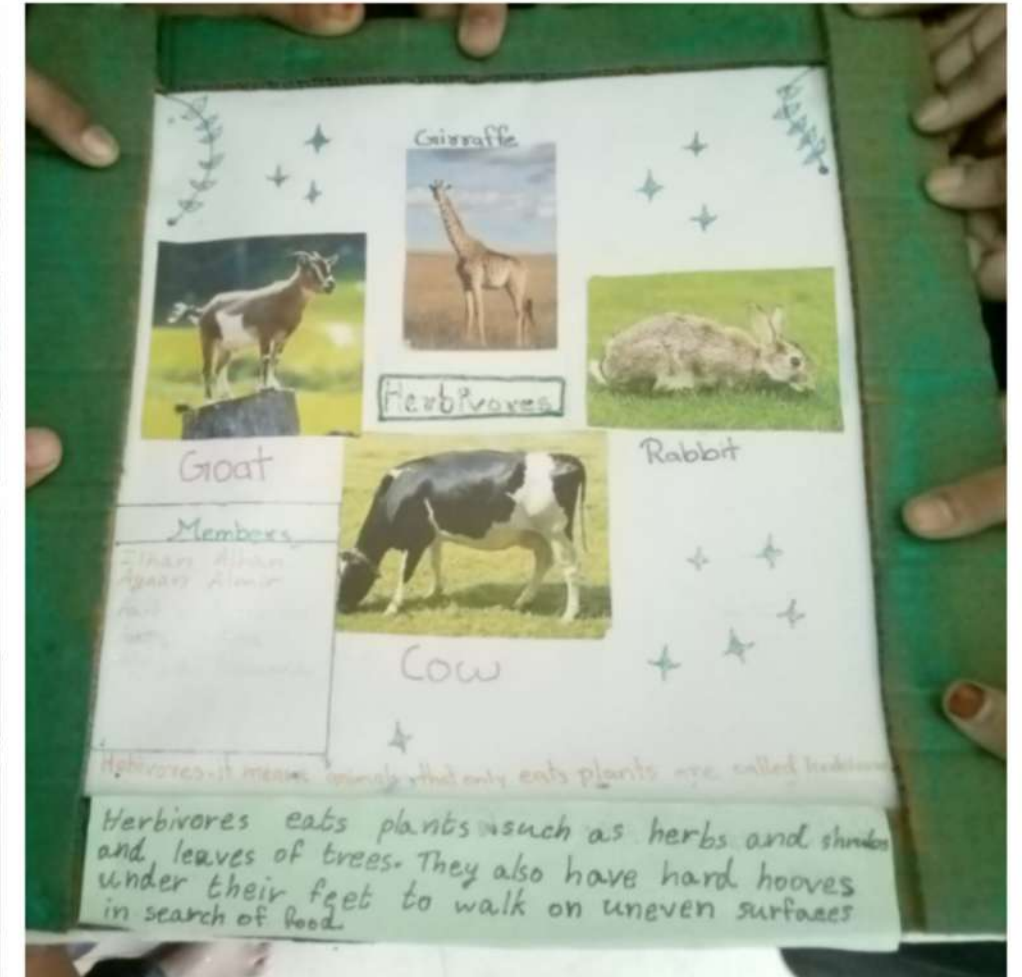 Girraffe
Herbivores
Goat
Rabbit
Members
Ilhan Alhan
Ayaan Almir
Cow
Hebivores-it means animals that only eats plants are called
Herbivores eats plants such as herbs and shrubs
and leaves of trees. They also have hard hooves
under their feet to walk on uneven surfaces
in search of food.